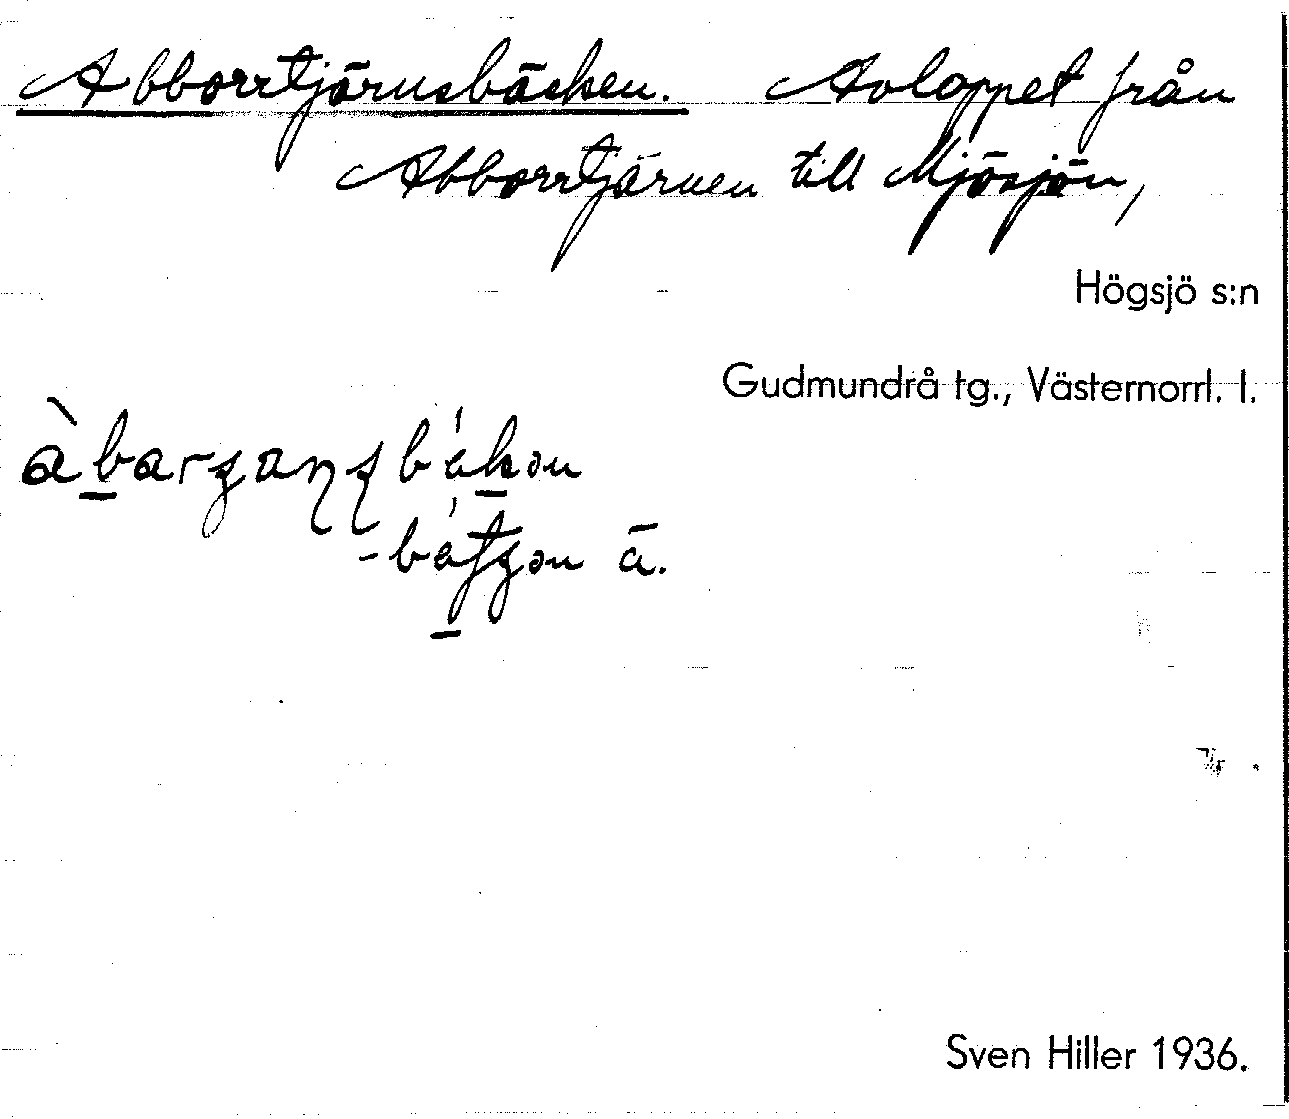 Abborrtjärnsbäcken. Avloppet från
Abborrtjärnen till Mjösjön,
Högsjö s:n
Gudmundrå tg., Västernorrl. l.
ä.
Sven Hiller 1936.